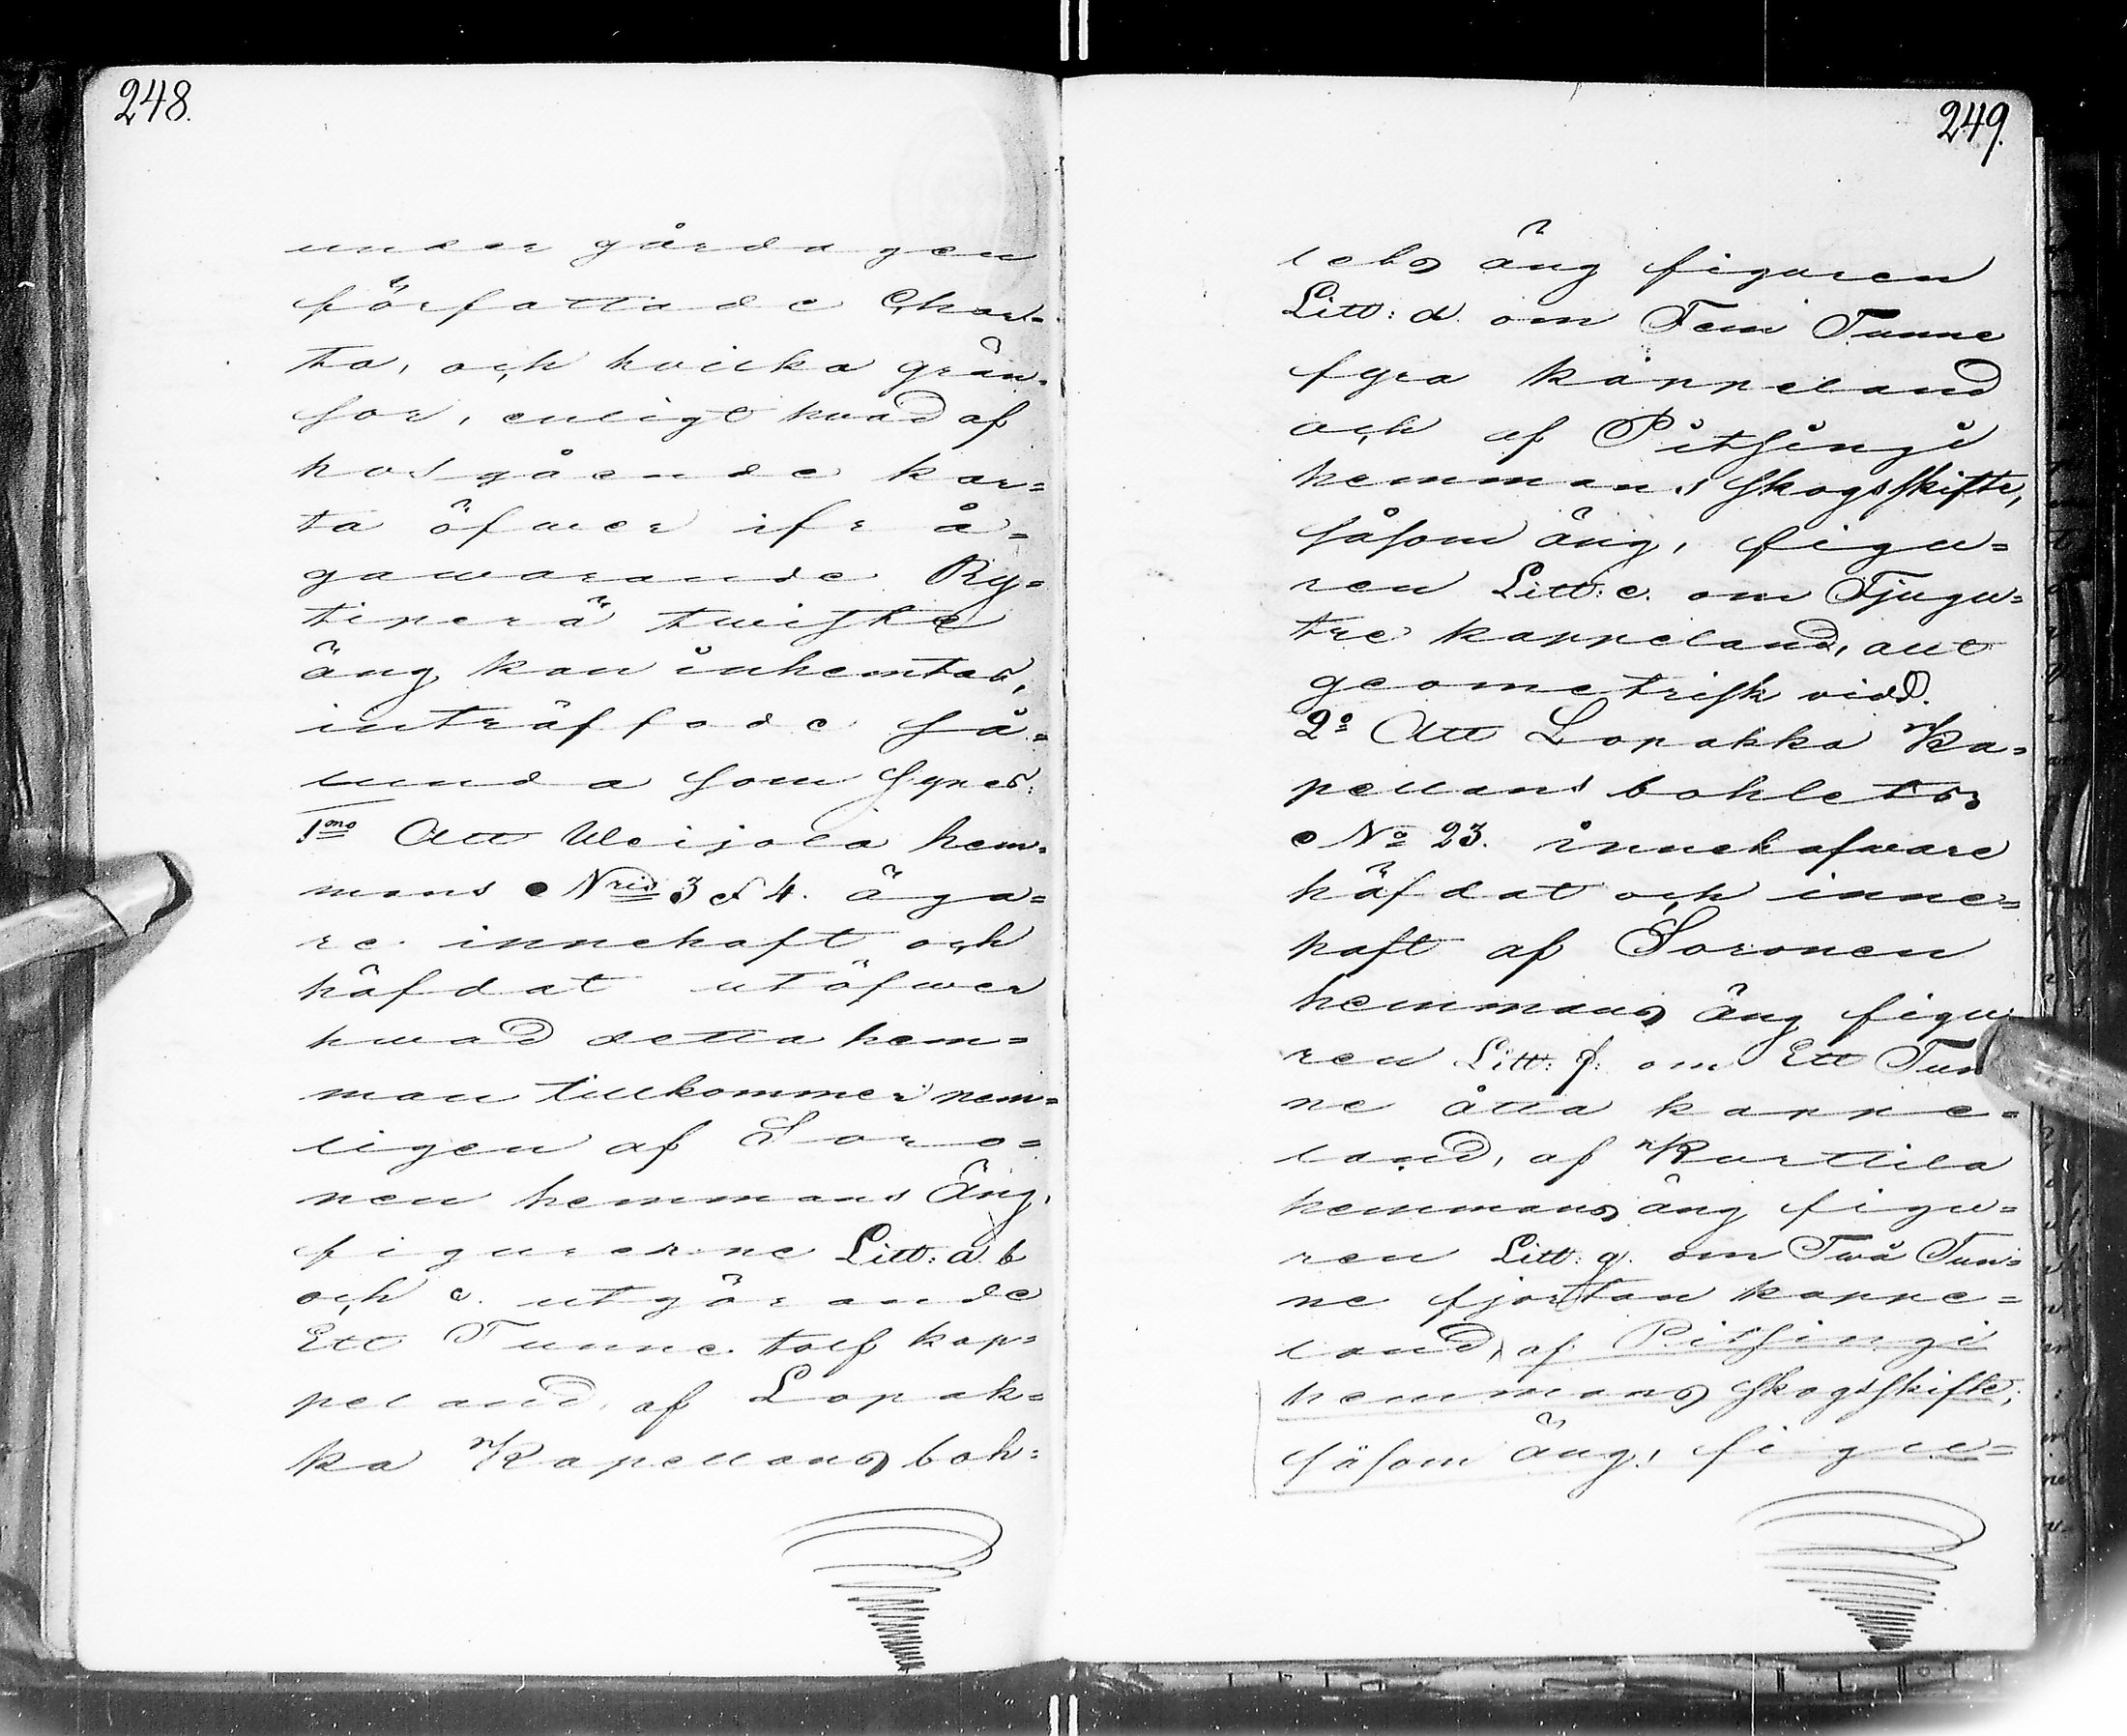 248.
under gårdagen
författade Char-
ta, och hvilka grän-
sor, enligt hvad af
hosgående kar=
ta öfwer ifr å=
gawarande Ry=
tiperä twistige
äng kan inhemtas,
inträffade så=
lunda som synes:
1mo Att Uleijola hem-
mans Nris 3 & 4. äga=
re innehaft och
häfdat utöfwer
hwad detta hem=
man tillkommer nem=
ligen af Soro=
nen hemmans Äng,
figurerne Litt: a. b
och c. utgörande
Ett Tunne tolf kap=
peland, af Lopak=
ka Kapellans boh=
249.
lets äng figuren
Litt: d. om Fem Tunne
fyra kappeland
och af Pitsingi
hemmans skogsskifte,
såsom äng, figu=
ren Litt: e. om Tjugu=
tre kappeland, allt
geometrisk vidd.
2o Att Lopakka Ka=
pellans bohlets
No 23. innehafware
häfdat och inne=
haft af Soronen
hemmans äng figu
ren Litt: f. om Ett Tun
ne åtta kappe=
land, af Kurttila
hemmans äng figu=
ren Litt: g. om Två Tun=
ne fjortan kappe=
land, af Pitsingi
hemmans skogsskifte,
såsom äng, figu=